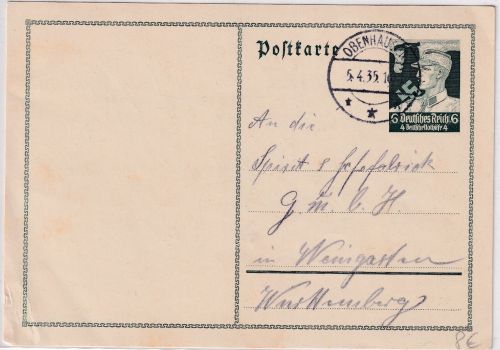 Postkarte
OBENHAUSEN
5.4.35.
6 Deutsches Reich 6
4 Deutsche Nothilfe 4
An die
Spirit & Hefefabrik
G. m. b. H.
in Weingarten
Württemberg
8€